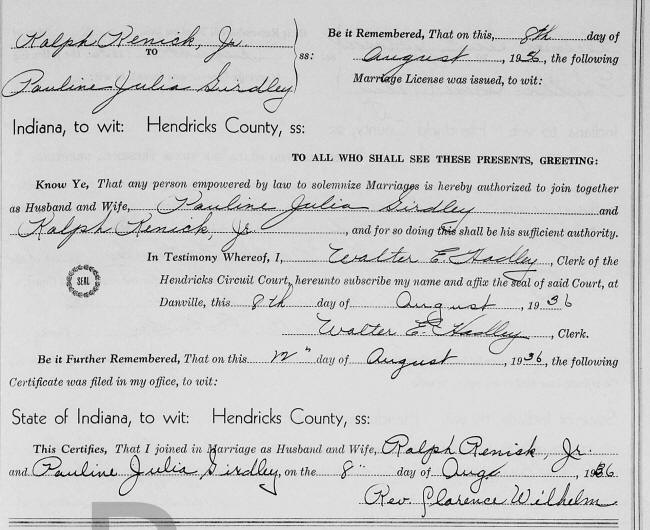 Ralph Renick, Jr.
TO
Pauline Julia Girdley
ss:
Be it Remembered, That on this, 8th day of
August, 1936, the following
Marriage License was issued, to wit:
Indiana, to wit: Hendricks County, ss:
TO ALL WHO SHALL SEE THESE PRESENTS, GREETING:
Know Ye, That any person empowered by law to solemnize Marriages is hereby authorized to join together
as Husband and Wife, Pauline Julia Girdley and
Ralph Renick, Jr., and for so doing this shall be his sufficient authority.
In Testimony Whereof, I, Walter E. Hadley, Clerk of the
Hendricks Circuit Court, hereunto subscribe my name and affix the seal of said Court, at
SEAL
Danville, this 8th day of August, 1936
Walter E. Hadley, Clerk.
Be it Further Remembered, That on this 12" day of August, 1936, the following
Certificate was filed in my office, to wit:
State of Indiana, to wit: Hendricks County, ss:
This Certifies, That I joined in Marriage as Husband and Wife, Ralph Renick, Jr.
and Pauline Julia Girdley, on the 8" day of Aug, 1936
Rev. Clarence Wilhelm